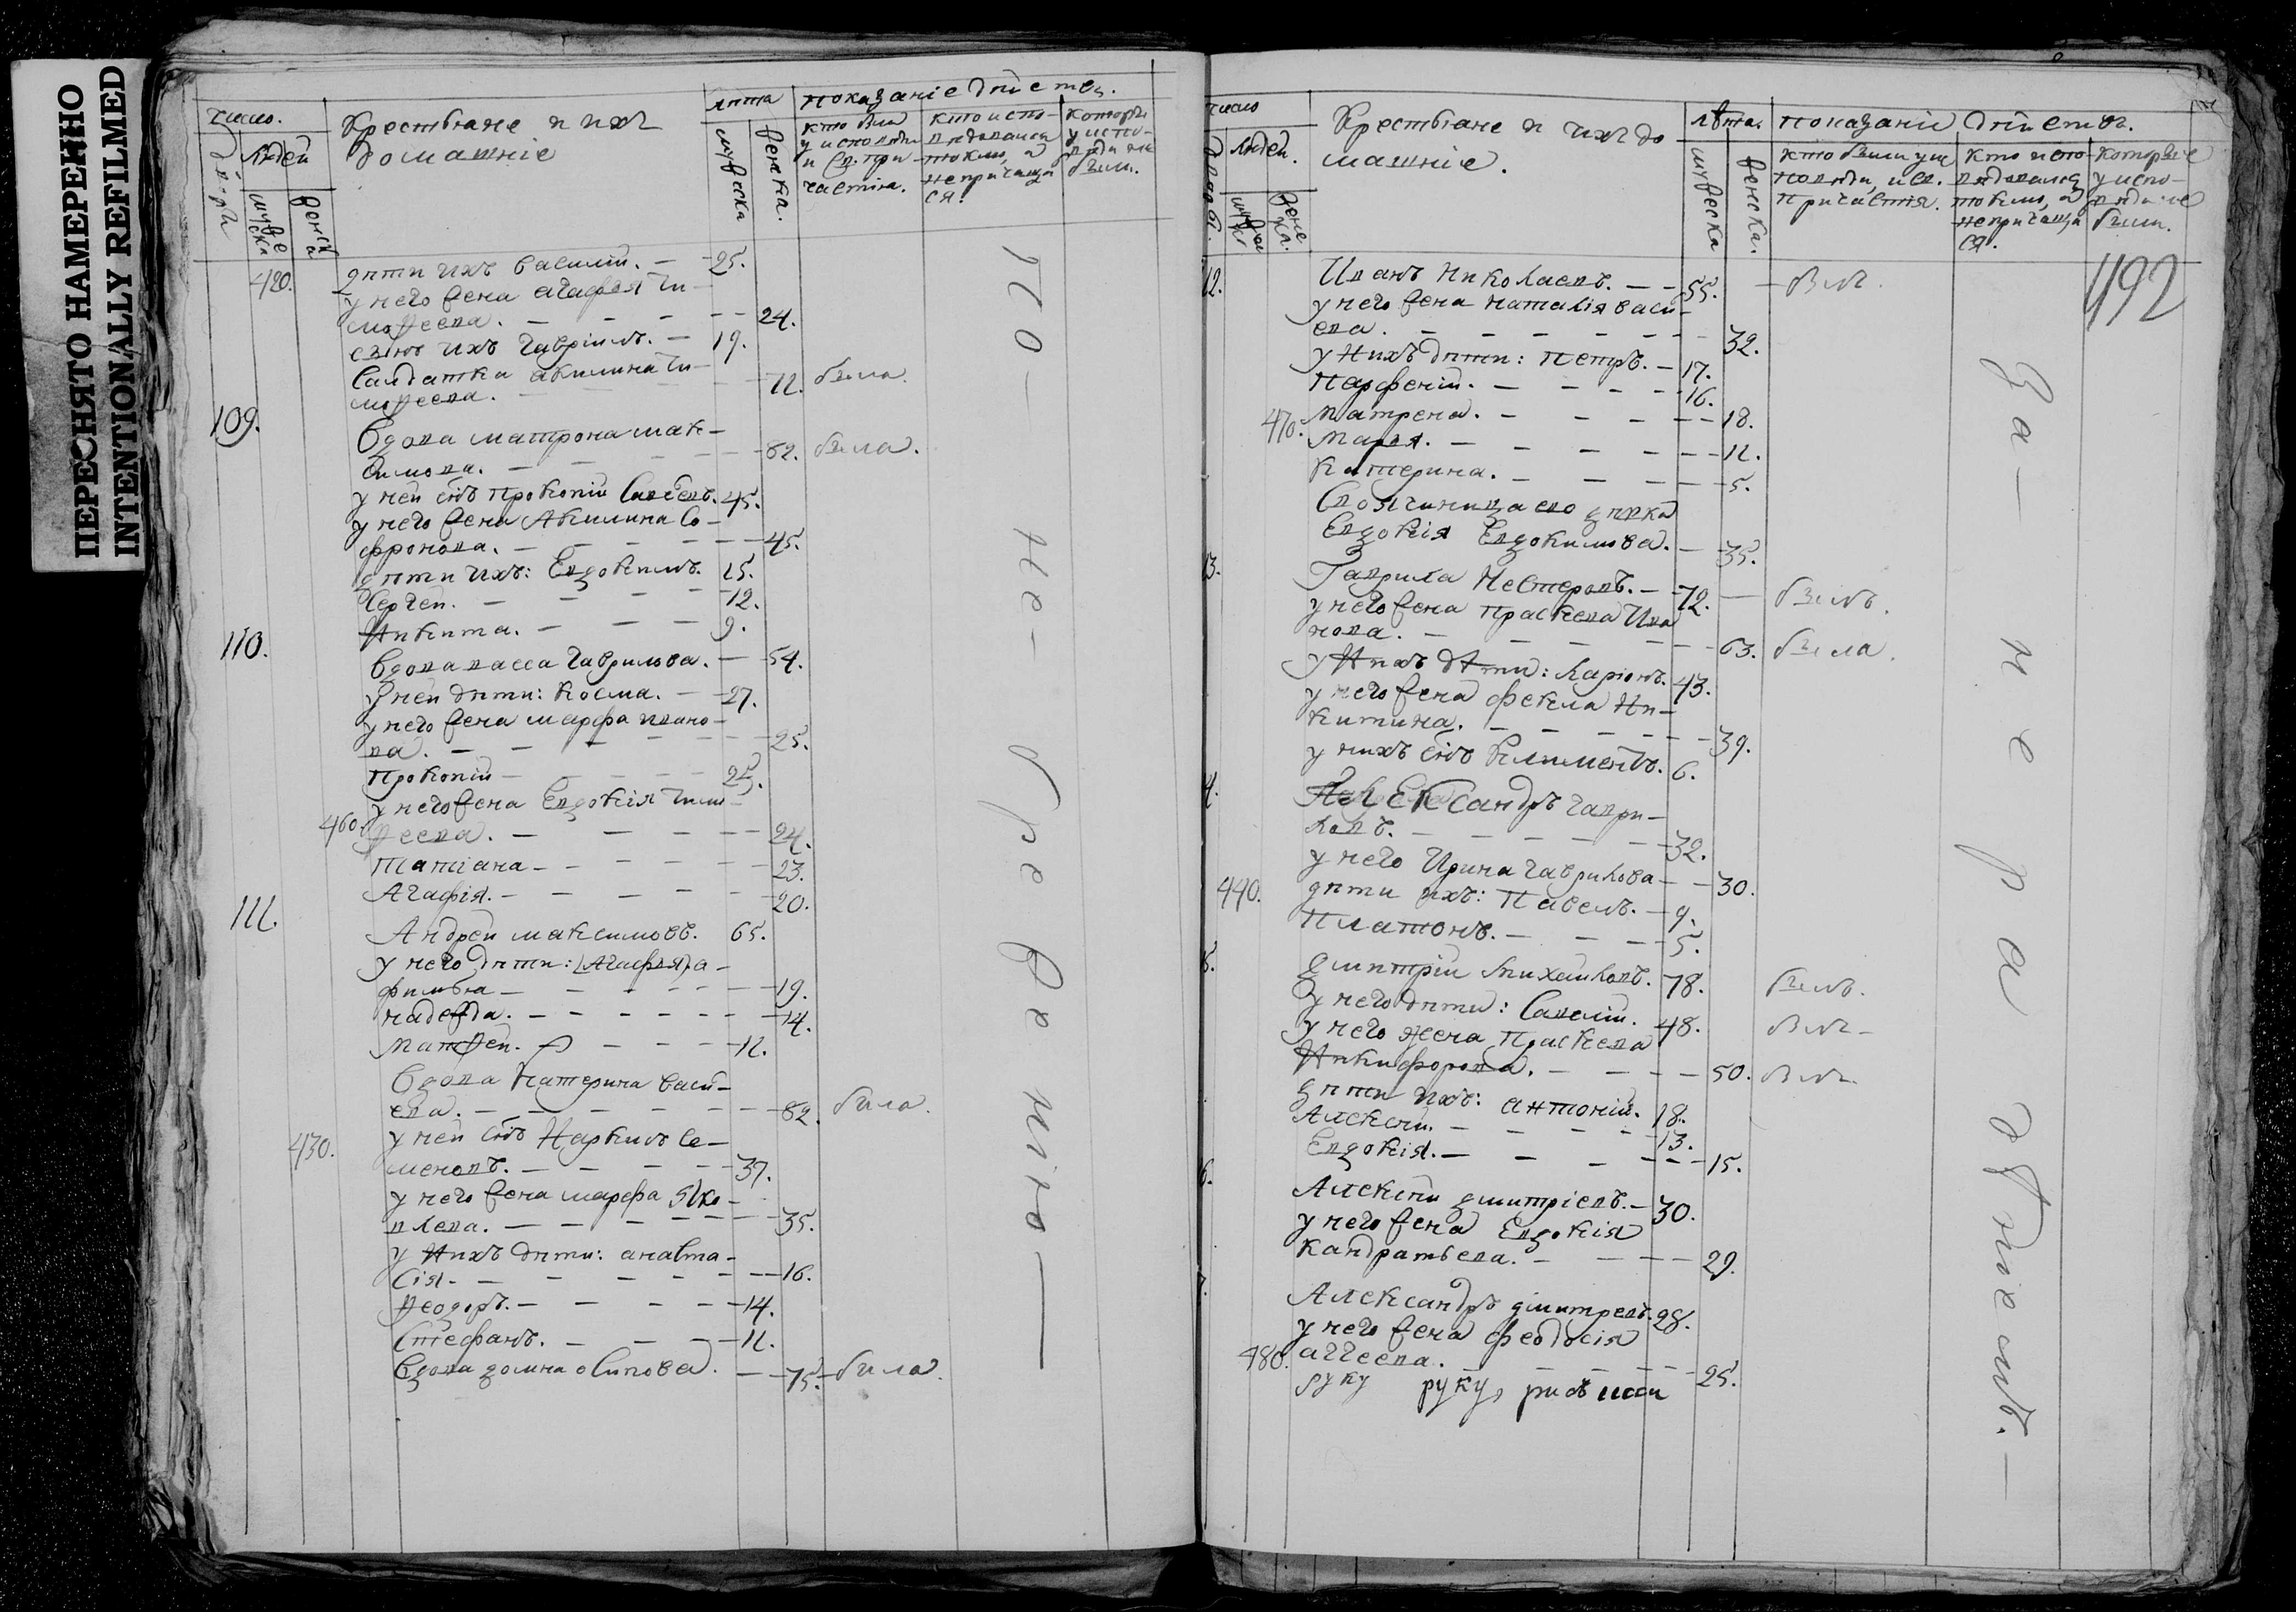 ПЕРЕСНЯТО НАМЕРЕННО
INTENTIONALLY REFILMED
число.
людей
Крестьяне и ихъ
домашніе
лѣта
мужеска
женска.
показаніе дѣйства.
кто был
у исповѣди
и св. при
частія.
кто испо-
вѣдовался
токмо, а
непричащал
ся.
которы
у испо-
вѣди не
были.
420.
дѣти ихъ Василій. — 25.
у него жена Агафія Ти-
мофеева. — 24.
сынъ ихъ Гавріилъ. — 19.
Салдатка Акилина Ти-
мофеева. — 72. была.
109.
Вдова Матрона Мак-
симова. — 82. была.
у ней снъ Прокопій Савельевъ. 45.
у него жена Акилина Со-
фронова. — 45.
дѣти ихъ: Евдокимъ. 15.
Сергей. — 12.
Никита. — 9.
110.
Вдова Васса Гаврилова. — 54.
у ней дѣти: Косма. — 27.
у него жена Марфа Ивано-
ва. — 25.
Прокопій — 25.
у него жена Евдокія Тимо-
460. феева. — 24.
Татіана — 23.
Агафія. — 20.
111.
Андрей Максимовъ. 65.
у него дѣти: (Агафья) а-
фимья — 19.
надежда. — 14.
Матфей. — 12.
Вдова Катерина Васил-
ева. — 82. была.
430.
у ней снъ Наркисъ Се-
меновъ. — 37.
у него жена Марфа Яко-
влева. — 35.
у Нихъ дѣти: анаста-
сія. — 16.
Феодоръ. — 14.
Стефанъ. — 12.
Вдова Домна Осипова. — 75. была.
по — не — бре же нію —
число
дворов.
людей.
муж
жене
ка.
Крестьяне и ихъ до
машніе.
лѣта.
мужеска
женска.
показаніе дѣйства.
кто были у ис
повѣди, и св.
причастія.
кто испо
вѣдовался
токмо, а
непричащал
ся.
которые
у испо-
вѣди не
были.
492
12. Иванъ Николаевъ. — 55. — былъ.
у него жена Наталія Васи-
ева. — 32.
у Нихъ дѣти: Петръ. — 17.
Парфеній. — 16.
470. Матрена. — 18.
Марья. — 12.
Катерина. — 5.
Своячиница его дѣвка
Евдокія Евдокимова. — 35.
13. Гаврила Нестеровъ. — 72. — былъ.
у него жена Праскева Ива
нова. — 63. была.
у Нихъ дѣти: Ларіонъ. 43.
у него жена Фекла Ни-
китина. — 39.
у нихъ снъ Климентъ. 6.
4. Александръ Гаври-
ловъ. — 32.
у него Ирина Гаврилова — 30.
440. дѣти ихъ: Павелъ. — 9.
Платонъ. — 5.
5. Дмитрій Михайловъ. 78. былъ.
у него дѣти: Савелій. 48. былъ —
у него жена Праскева
Никифорова. — 50. былъ.
дѣти ихъ: Антоній. 18.
Алексѣй. — 13.
Евдокія. — 15.
6. Алексѣй Дмитріевъ. — 30.
у него жена Евдокія
Кандратьева. — 29.
7. Александръ Дмитревъ. 28.
у него жена Феодосія
480. Аггеева. — 25.
руку руку,
За — не ра дѣніемъ. —